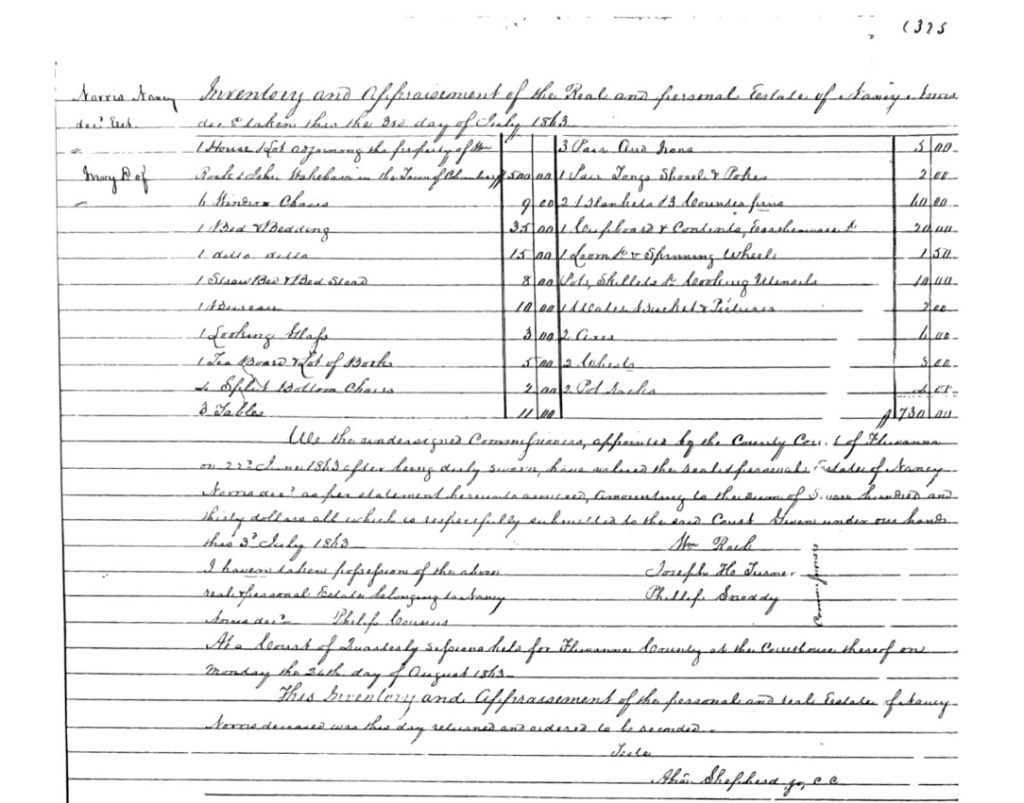 (325
Norris Nancy
decd Est.
Invy & of
Inventory and Appraisement of the Real and personal Estate of Nancy Norris
decd taken this the 3rd day of July 1863
1 House & Lot adjoining the property of Wm
in the Town of $500 00
6 Windsor Chairs 9 00
1 Bed & Bedding 35 00
1 ditto ditto 15 00
1 Straw Bed & Bed Stead 8 00
1 Bureau 10 00
1 Looking Glass 3 00
1 Tea Board & Lot of Books 5 00
4 Split Bottom Chairs 2 00
3 Tables 11 00
3 Pair And Irons 5 00
1 Pair Tongs Shovel & Poker 2 00
2 Blankets & 3 Counterpins 60 00
1 Cupboard & Contents, Earthenware &c 20 00
1 Loom &c & Spinning Wheels 1 50
Pots, Skillets &c Cooking Utensils 10 00
1 Water Bucket & Pictures 00
2 Axes 00
2 Chests 5 00
2 Pot racks
$730 00
We the undersigned Commissioners, appointed by the County Court of Fluvanna
on 22d June 1863 after being duly sworn, have valued the real & personal Estate of Nancy
Norris decd as per statement hereunto annexed, amounting to the sum of Seven hundred and
thirty dollars all which is respectfully submitted to the said Court Given under our hands
this 3d July 1863
Wm Rash
Joseph H. Turner
Phillip Sneddy
Commissioners
I have taken possession of the above
real & personal Estate belonging to Nancy
Norris decd Philip Cousins
At a Court of Quarterly sessions held for Fluvanna County at the Courthouse thereof on
Monday the 24th day of August 1863
This Inventory and Appraisement of the personal and real Estate of Nancy
Norris deceased was this day returned and ordered to be recorded.
Teste
Abm Shepherd jr, C C